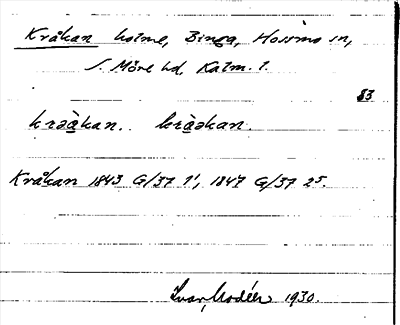 Kråkan holme, Binga, Hossmo sn,
S. Möre hd, Kalm. l.
83
Kråkan 1843 G/37 1', 1847 G/37 25.
Ivar Modéer 1930.